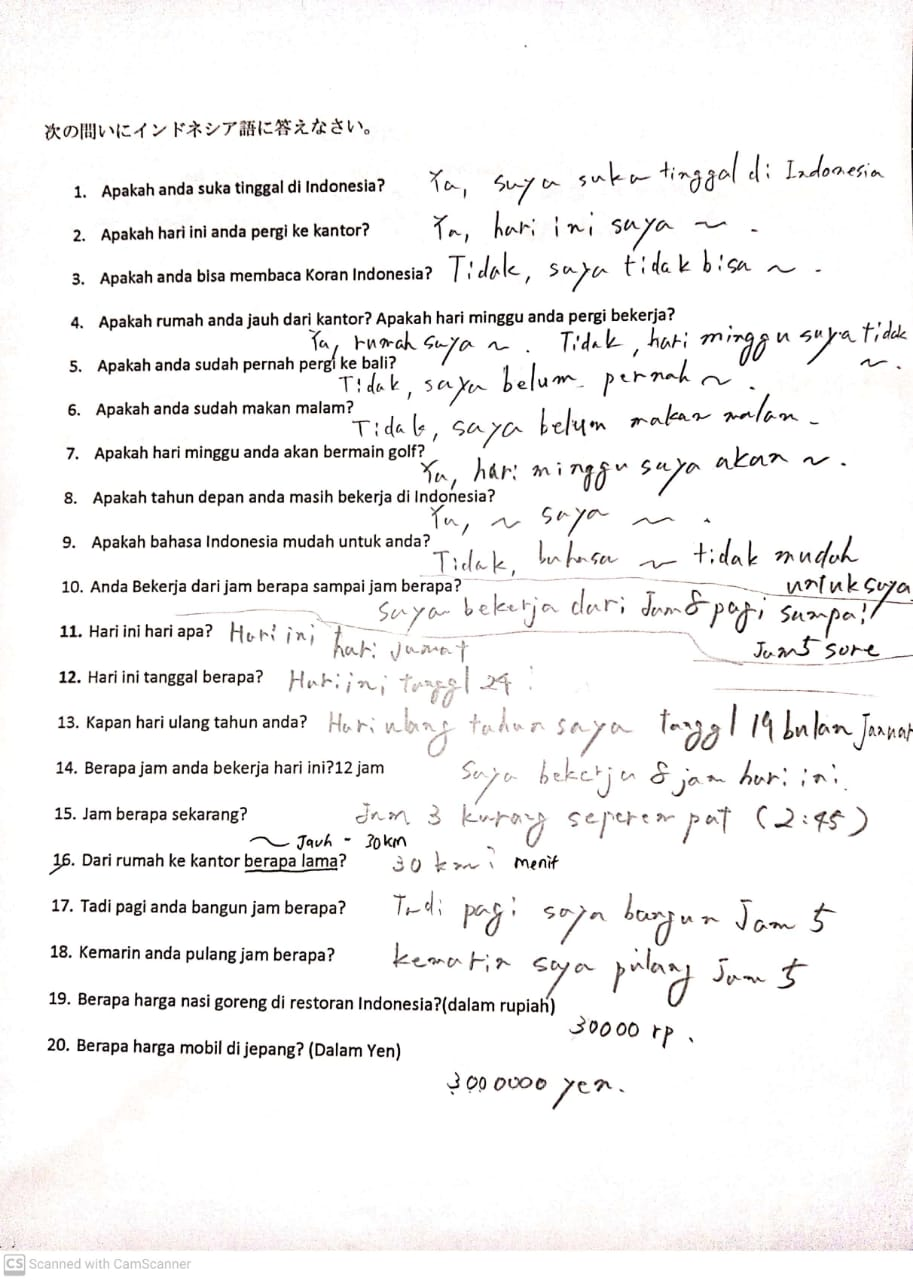 次の問いにインドネシア語に答えなさい。
1. Apakah anda suka tinggal di Indonesia? Ya, saya suka tinggal di Indonesia
2. Apakah hari ini anda pergi ke kantor? Ya, hari ini saya ~ .
3. Apakah anda bisa membaca Koran Indonesia? Tidak, saya tidak bisa ~ .
4. Apakah rumah anda jauh dari kantor? Apakah hari minggu anda pergi bekerja?
Ya, rumah saya ~ . Tidak, hari minggu saya tidak ~ .
5. Apakah anda sudah pernah pergi ke bali?
Tidak, saya belum pernah ~ .
6. Apakah anda sudah makan malam?
Tidak, saya belum makan malam.
7. Apakah hari minggu anda akan bermain golf?
Ya, hari minggu saya akan ~ .
8. Apakah tahun depan anda masih bekerja di Indonesia?
Ya, ~ saya ~ .
9. Apakah bahasa Indonesia mudah untuk anda?
Tidak, bahasa ~ tidak mudah
untuk saya
10. Anda Bekerja dari jam berapa sampai jam berapa?
saya bekerja dari Jam 8 pagi sampai
Jam 5 sore
11. Hari ini hari apa? Hari ini
hari Jumat
12. Hari ini tanggal berapa? Hari ini tanggl 24
13. Kapan hari ulang tahun anda? Hari ulang tahun saya tanggl 19 bulan Januar
14. Berapa jam anda bekerja hari ini?12 jam Saya bekerja 8 jam hari ini.
15. Jam berapa sekarang? Jam 3 kurang seperempat (2:45)
~ Jauh - 30km
16. Dari rumah ke kantor berapa lama? 30 menit
17. Tadi pagi anda bangun jam berapa? Tadi pagi saya bangun Jam 5
18. Kemarin anda pulang jam berapa? kemarin saya pulang Jam 5
19. Berapa harga nasi goreng di restoran Indonesia?(dalam rupiah)
30000 rp.
20. Berapa harga mobil di jepang? (Dalam Yen)
3000000 yen.
CS Scanned with CamScanner